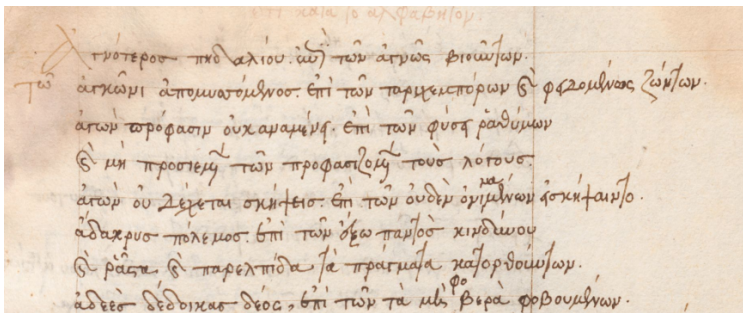 κατὰ ἀλφάβητον.
Ἁγνότερος πηδαλίου. ἐπὶ τῶν ἁγνῶς βιούντων.
ἀγκῶνι ἀπομυττόμενος. ἐπὶ τῶν ταριχεμπόρων καὶ φειδομένως ζώντων.
ἀγὼν πρόφασιν οὐκ ἀναμένει. ἐπὶ τῶν φύσει ῥαθύμων
καὶ μὴ προσιεμένων τῶν προφασιζομένων τοὺς λόγους.
ἀγὼν οὐ δέχεται σκήψεις. ἐπὶ τῶν οὐδὲν ὀνιναμένων εἰ σκήψαιντο.
ἄδακρυς πόλεμος. ἐπὶ τῶν ἔξω παντὸς κινδύνου
καὶ ῥᾷστα καὶ παρελπίδα τὰ πράγματα κατορθούντων.
ἀδεὲς δέδοικας δέος, ἐπὶ τῶν τὰ μὴ φοβερὰ φοβουμένων.